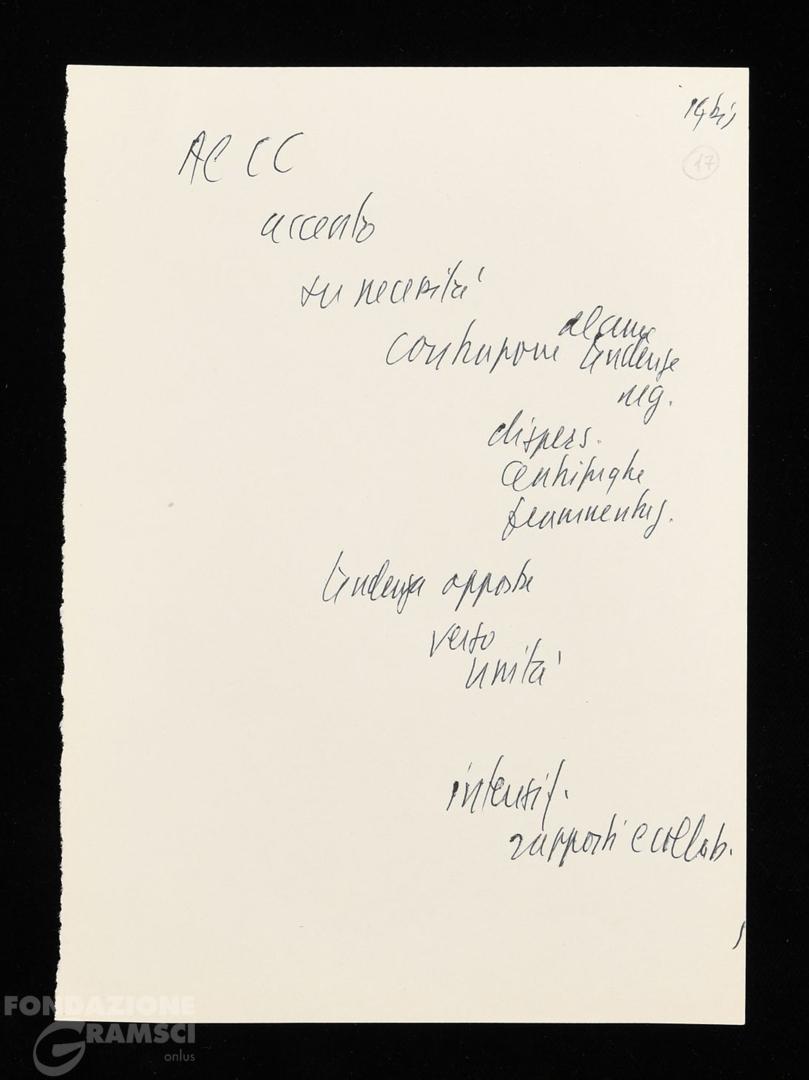 14bis
17
Al CC
accento
su necessità
contrapporre alcune tendenze
neg.
dispers.
centrifughe
frammentaz.
tendenza opposta
verso
unità
intensif.
rapporti e collab.
FONDAZIONE
GRAMSCI
onlus